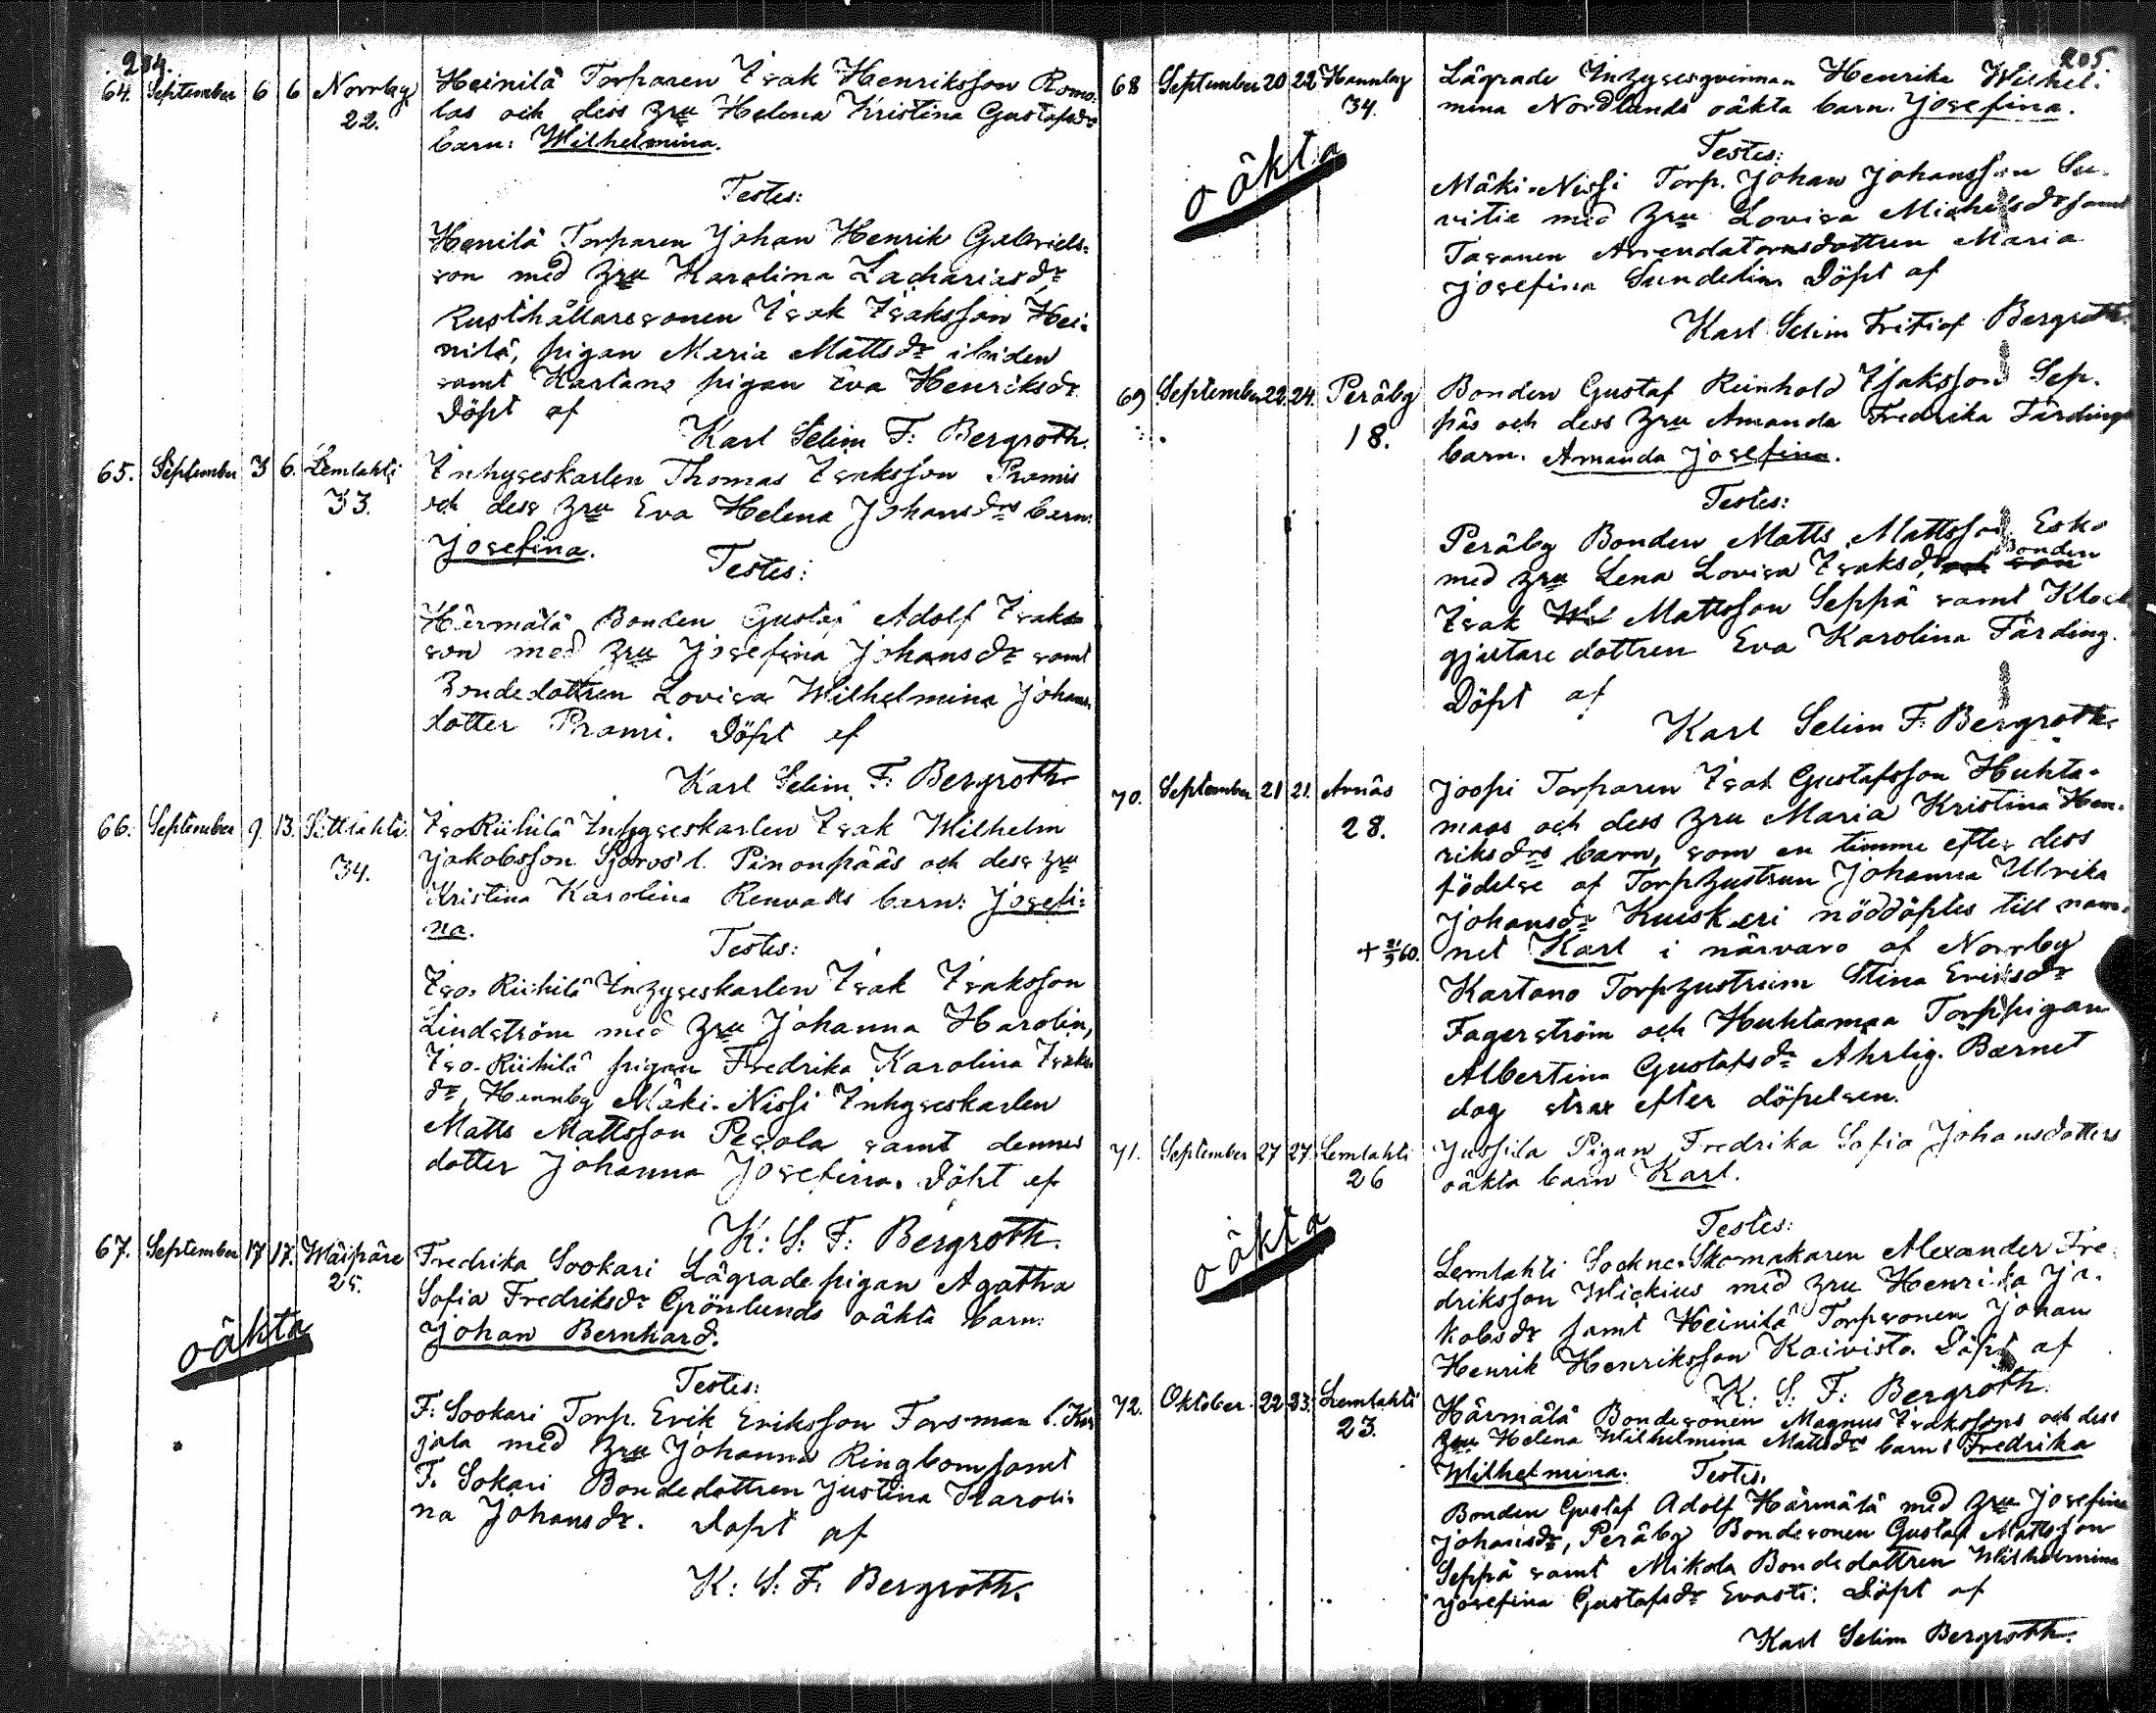 204.
64. September 6 6 Norrby 22. Heinilä Torparen Isak Henriksson Romo-
las och dess Hru Helena Kristina Gustafsdrs
barn: Wilhelmina.
Testes:
Henilä Torparen Johan Henrik Gabriels-
son med Hru Karolina Zachariasdr,
Rusthållaresonen Isak Isaksson Hei-
nilä, pigan Maria Mattsdr ibiden
samt Kartano pigan Eva Henriksdr
Döpt af
Karl Selim F: Bergroth.
65. September 3 6. Lemlahti 33. Inhyseskarlen Thomas Isaksson Pramis
och dess Hru Eva Helena Johansdrs barn:
Josefina.
Testes:
Härmälä Bonden Gustaf Adolf Isaks
son med Hru Josefina Johansdr samt
Bondedottren Lovisa Wilhelmina Johans
dotter Prami. Döpt af
Karl Selim F: Bergroth
66. September 9. 13. Sittlahti 34. Iso Riihilä Inhyseskarlen Isak Wilhelm
Jakobsson Sjöros l. Pinonpääs och dess Hru
Kristina Karolina Renvalls barn: Josefi-
na.
Testes:
Iso-Riihilä Inhyseskarlen Isak Isaksson
Lindström med Hru Johanna Harolin,
Iso-Riihilä pigan Fredrika Karolina Isaks
dr, Hannby Mäki-Nissi Inhyseskarlen
Matts Mattsson Pesola samt dennes
dotter Johanna Josefina. Döpt af
K: S: F: Bergroth.
67. September 17 17. Wäipäre 25. Fredrika Sookari Lägrade pigan Agatha
Sofia Fredriksdr Grönlunds oäkta barn:
Johan Bernhard.
oäkta
Testes:
F: Sookari Torp. Erik Eriksson Forsman l. Kar
jala med Hru Johanna Ringbom samt
F. Sokari Bondedottren Justina Karoli-
na Johansdr. Döpt af
K: S: F: Bergroth.
205
68 September 20 22 Hannby 34. Lägrade Inhysesqvinnan Henrika Wilhel-
mina Nordlunds oäkta barn: Josefina.
oäkta
Testes:
Mäki-Nissi Torp. Johan Johansson Su-
vitie med Hru Lovisa Michelsdr samt
Tasanen Arrendatorsdottren Maria
Josefina Sundelin Döpt af
Karl Selim Fritiof Bergroth.
69 September 22. 24. Peräby 18. Bonden Gustaf Reinhold Isaksson Sep-
päs och dess Hru Amanda Fredrika Färdings
barn. Amanda Josefina.
Testes:
Peräby Bonden Matts Mattsson Esko
med Hru Lena Lovisa Isaksdr, och son Bonden
Isak Mattsson Seppä samt Klock
gjutare dottren Eva Karolina Färding.
Döpt af
Karl Selim F: Bergroth.
70. September 21 21. Arnäs 28. Joopi Torparen Isak Gustafsson Huhta-
maas och dess Hru Maria Kristina Hen-
riksdrs barn, som en timme efter dess
födelse af Torphustrun Johanna Ulrika
Johansdr Kuiskeri nöddöptes till nam-
+ 21/9 60. net Karl i närvaro af Norrby
Kartano Torphustrum Stina Eriksdr
Fagerström och Huhtamaa Torppigan
Albertina Gustafsdr Ahrlig. Barnet
dog strax efter döpelsen.
71. September 27 27. Lemlahti 26 Jussila Pigan Fredrika Sofia Johansdotters
oäkta barn Karl.
oäkta
Testes:
Lemlahti Sockne-Skomakaren Alexander Fre-
driksson Wickius med Hru Henrika Ja-
kobsdr samt Heinilä Torpsonen Johan
Henrik Henriksson Koivisto. Döpt af
K: S: F: Bergroth.
72. Oktober 22 23. Lemlahti 23. Härmälä Bondesonen Magnus Isakssons och dess
Hru Helena Wilhelmina Mattsdrs barn: Fredrika
Wilhelmina.
Testes.
Bonden Gustaf Adolf Härmälä med Hru Josefina
Johansdr, Peräby Bondesonen Gustaf Mattsson
Seppä samt Mikola Bondedottren Wilhelmina
Josefina Gustafsdr Evasti. Döpt af
Karl Selim Bergroth.